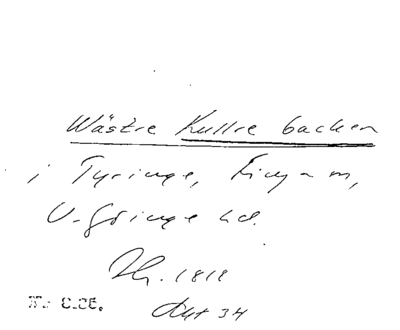 Wästre Kullre backen
i Tyringe, Finja sn,
V. Göinge hd.
1818
Akt 34